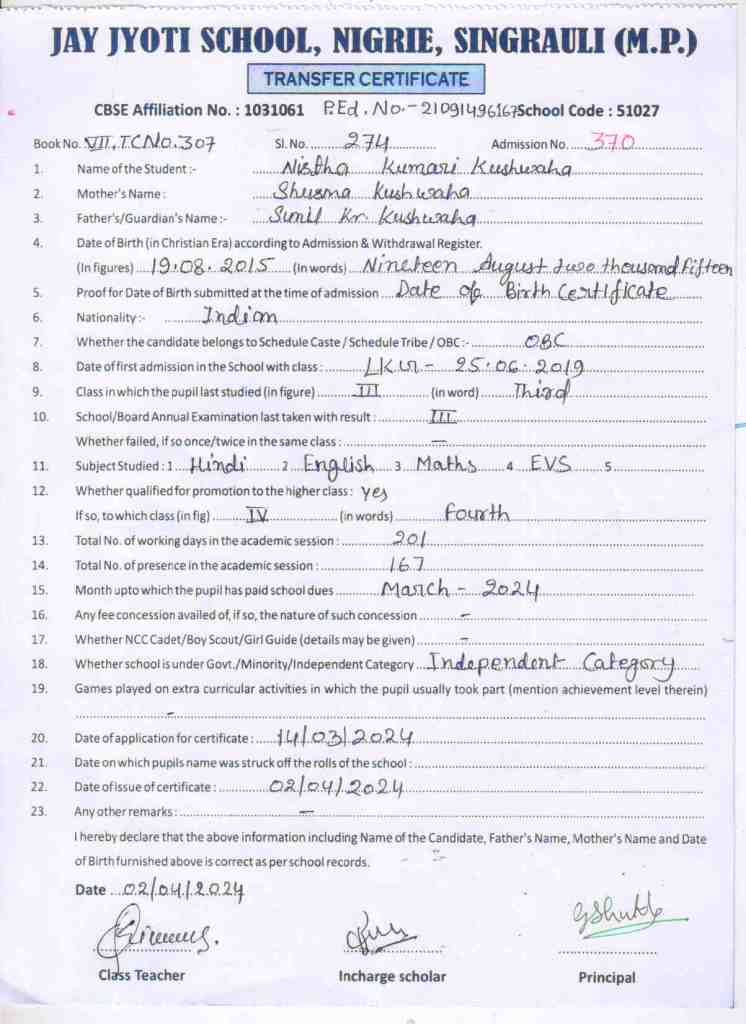 JAY JYOTI SCHOOL, NIGRIE, SINGRAULI (M.P.)
TRANSFER CERTIFICATE
CBSE Affiliation No. : 1031061 P.Ed. No.- 21091496167 School Code : 51027
Book No. VII, T.C No. 307 Sl. No. 274 Admission No. 370
1. Name of the Student :- Nistha Kumari Kushwaha
2. Mother's Name : Shusma Kushwaha
3. Father's/Guardian's Name :- Sunil Kr. Kushwaha
4. Date of Birth (in Christian Era) according to Admission & Withdrawal Register.
(In figures) 19.08.2015 (In words) Nineteen August two thousand fifteen
5. Proof for Date of Birth submitted at the time of admission Date of Birth Certificate
6. Nationality :- Indian
7. Whether the candidate belongs to Schedule Caste / Schedule Tribe / OBC :- OBC
8. Date of first admission in the School with class : LKG - 25.06.2019
9. Class in which the pupil last studied (in figure) III (in word) Third
10. School/Board Annual Examination last taken with result : III
Whether failed, if so once/twice in the same class : —
11. Subject Studied : 1 Hindi 2 English 3 Maths 4 EVS 5
12. Whether qualified for promotion to the higher class : yes
If so, to which class (in fig) IV (in words) Fourth
13. Total No. of working days in the academic session : 201
14. Total No. of presence in the academic session : 167
15. Month upto which the pupil has paid school dues March - 2024
16. Any fee concession availed of, if so, the nature of such concession -
17. Whether NCC Cadet/Boy Scout/Girl Guide (details may be given) -
18. Whether school is under Govt./Minority/Independent Category Independent Category
19. Games played on extra curricular activities in which the pupil usually took part (mention achievement level therein)
-
20. Date of application for certificate : 14/03/2024
21. Date on which pupils name was struck off the rolls of the school :
22. Date of Issue of certificate : 02/04/2024
23. Any other remarks : —
I hereby declare that the above information including Name of the Candidate, Father's Name, Mother's Name and Date
of Birth furnished above is correct as per school records.
Date 02/04/2024
GShukla
Class Teacher Incharge scholar Principal